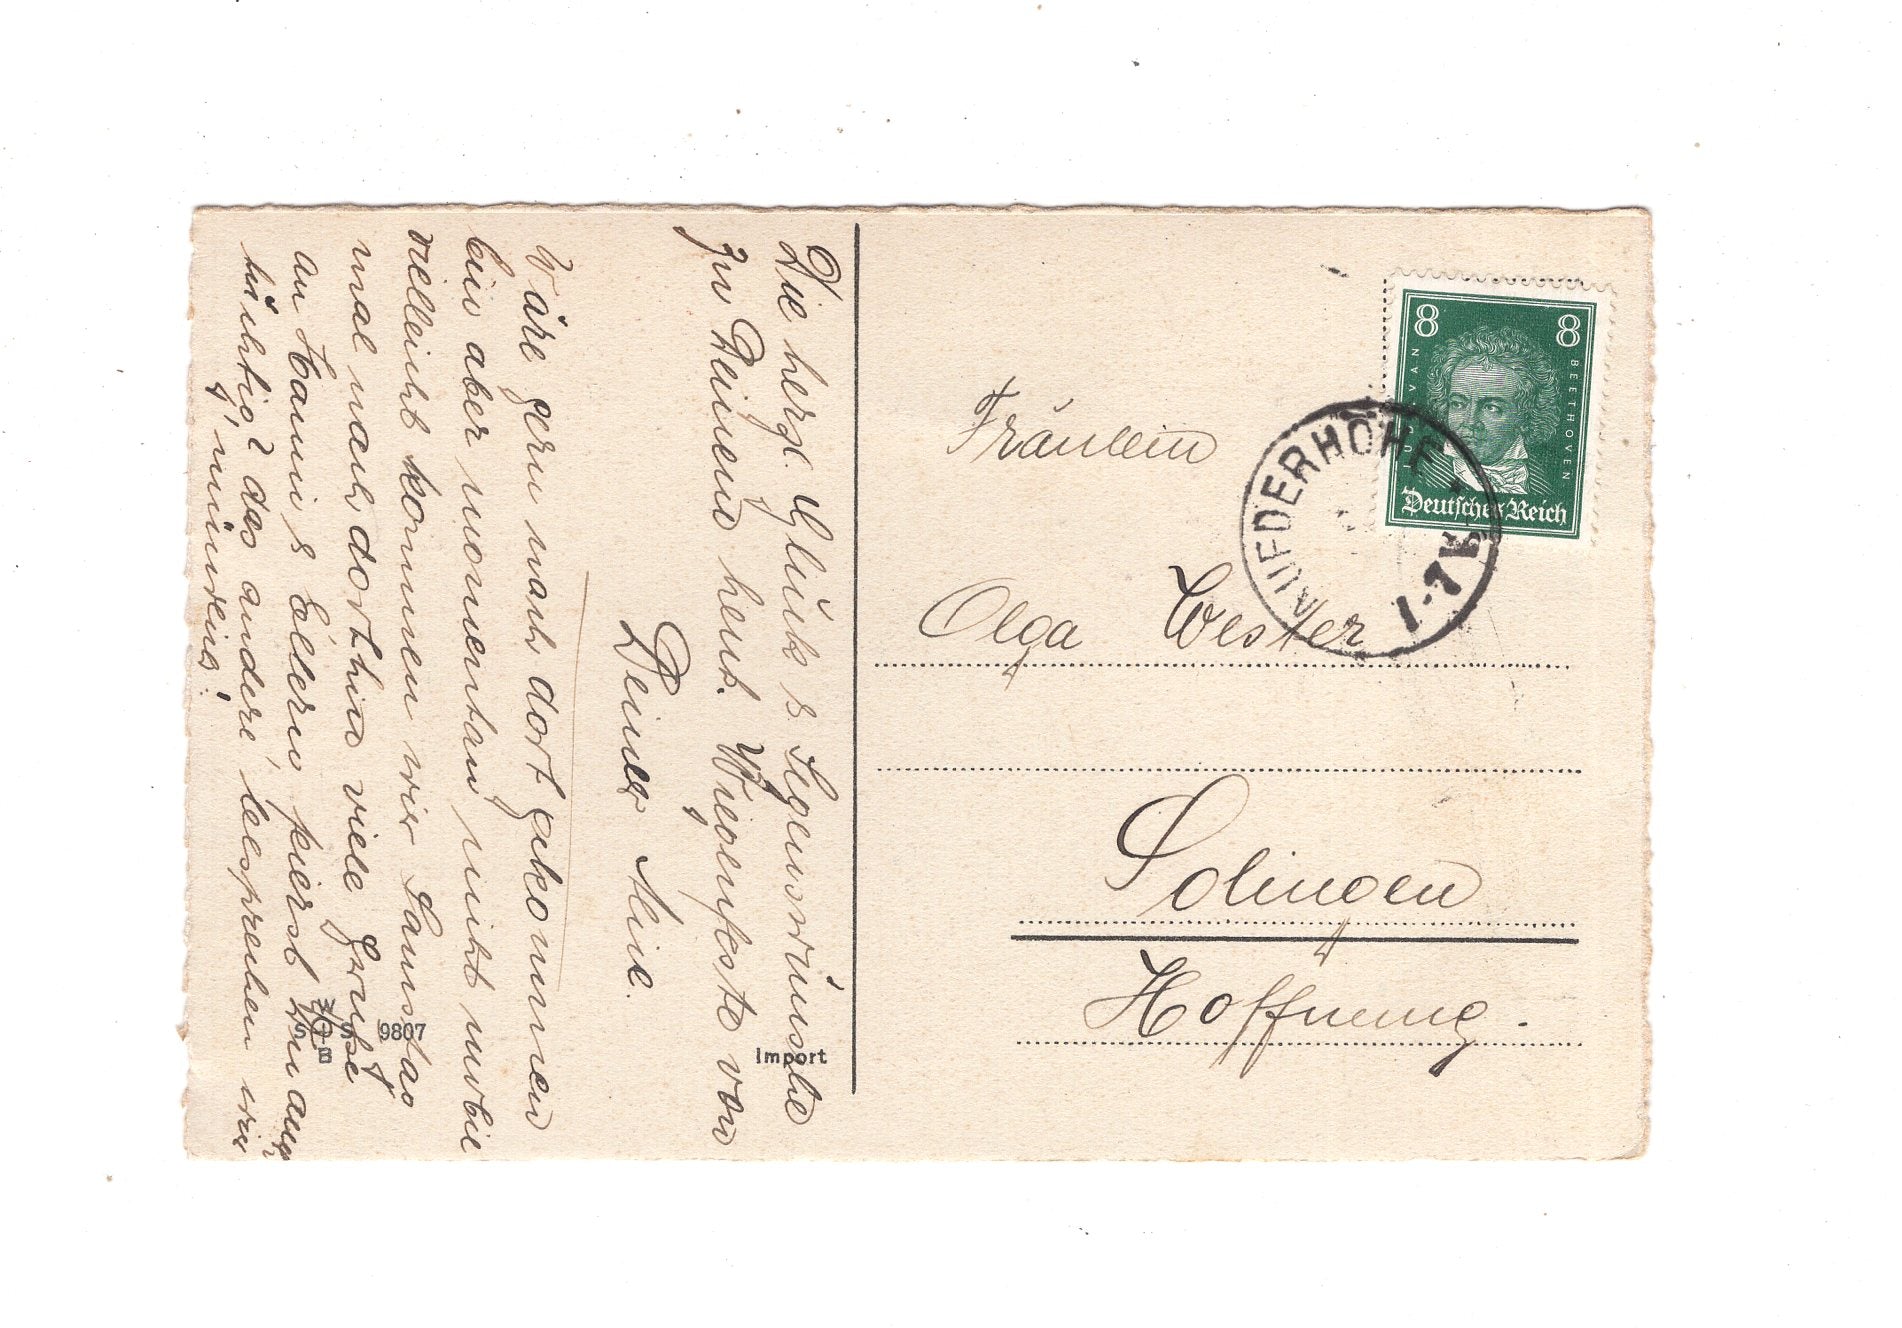 Die herzl. Glück & Segenswünsche
zu Deinem heut. Wiegenfeste von
Deiner Mie.
Wäre gern nach dort gekommen
bin aber momentan nicht mobil
vielleicht kommen wir Samstag
mal nach dorthin viele Grüße
an Hanni & Eltern
das andere besprechen wir
mündlich!
W
S B S 9807
Import
8 8
LUDWIG VAN BEETHOVEN
Deutsches Reich
AUFDERHÖHE
Fräulein
Olga Wester
Solingen
Hoffnung.